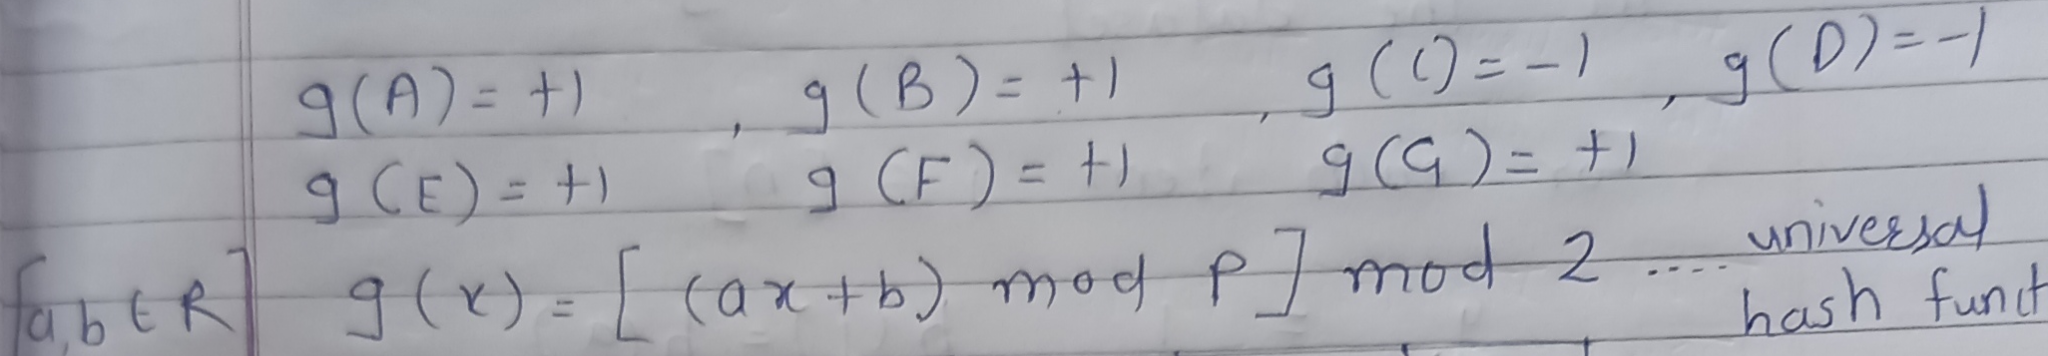 g(A) = +1 , g(B) = +1 , g(C) = -1 , g(D) = -1
g(E) = +1 g(F) = +1 g(G) = +1
[a,b ∈ R] g(x) = [(ax+b) mod P] mod 2 .... universal
hash funct